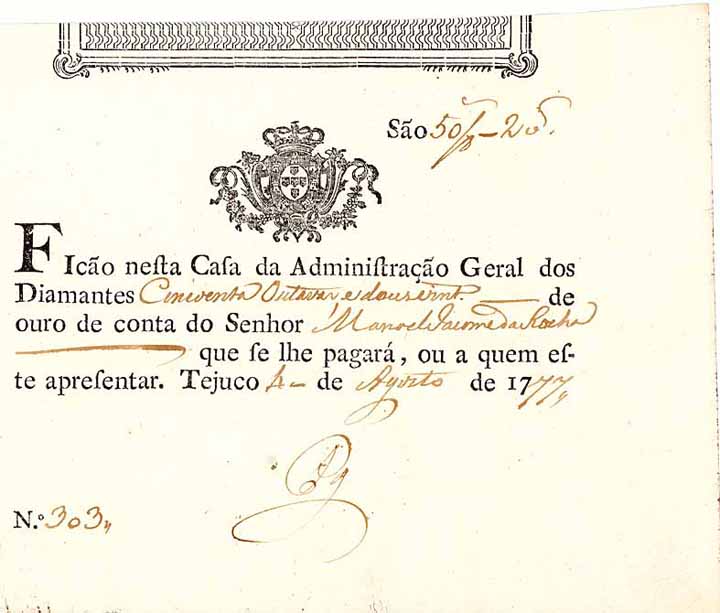 São 50/8 – 2 v.
FIcão neſta Caſa da Adminiſtração Geral dos
Diamantes Cincoenta Outavas e dous vint. — de
ouro de conta do Senhor Manoel Jacome da Rocha
— que ſe lhe pagará, ou a quem eſ-
te apreſentar. Tejuco 4 – de Agosto de 1777
N.º 303